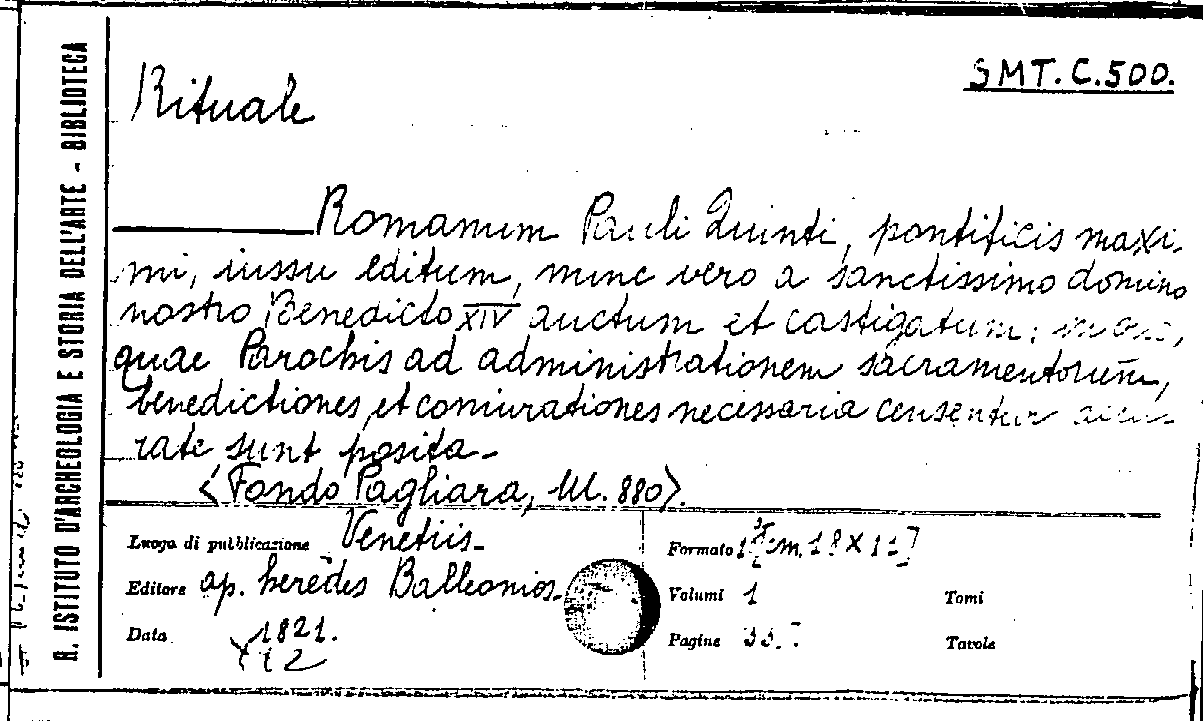 R. ISTITUTO D'ARCHEOLOGIA E STORIA DELL'ARTE - BIBLIOTECA
SMT. C. 500.
Rituale
Romanum Pauli Quinti, pontificis maxi-
mi, iussu editum, nunc vero a sanctissimo domino
nostro Benedicto XIV auctum et castigatum: in quo,
quae Parochis ad administrationem sacramentorum,
benedictiones, et coniurationes necessaria censentur accu-
rate sunt posita-
<Fondo Pagliara, M. 880>.
Luogo di pubblicazione Venetiis-
Editore ap. heredes Balleonios-
Data 1821.
Formato [cm. 18 X 11]
Volumi 1
Tomi
Pagine
Tavole